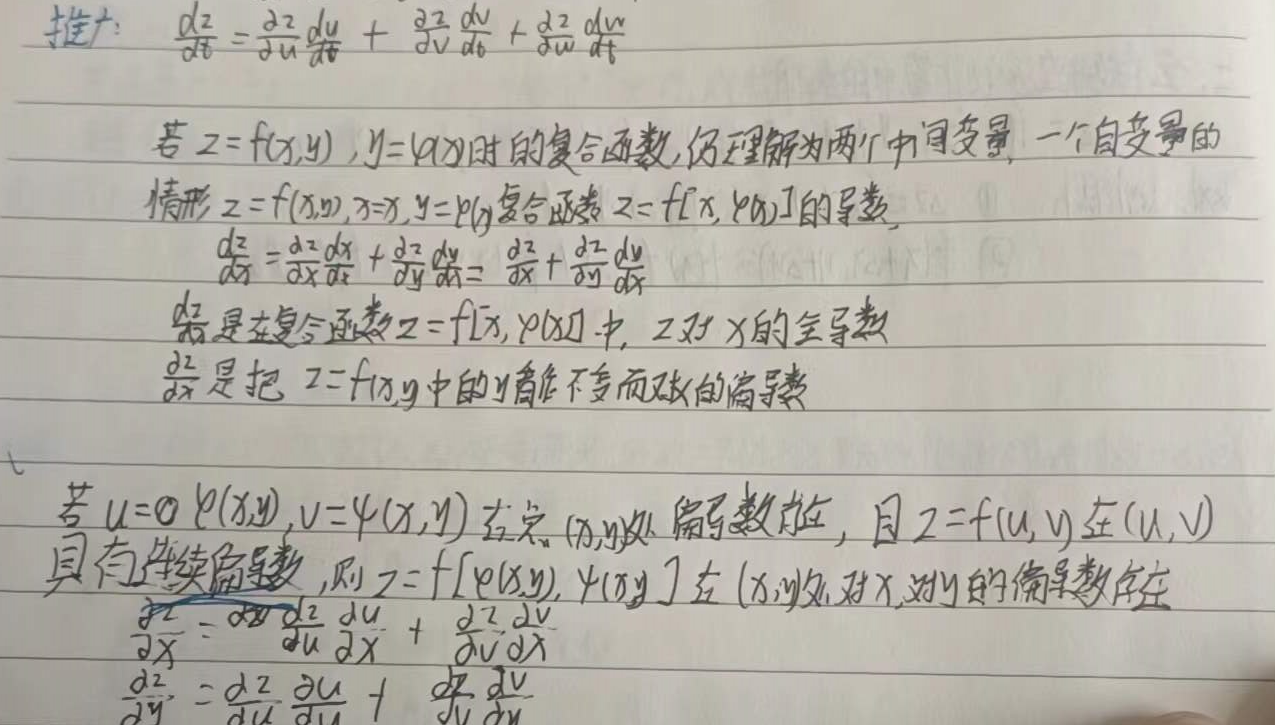 推广: dz/dt = ∂z/∂u du/dt + ∂z/∂v dv/dt + ∂z/∂w dw/dt
若 z=f(x,y), y=φ(x)时的复合函数,仍理解为两个中间变量,一个自变量的
情形 z=f(x,y), x=x, y=φ(x)复合函数 z=f[x,φ(x)]的导数,
dz/dx = ∂z/∂x dx/dx + ∂z/∂y dy/dx = ∂z/∂x + ∂z/∂y dy/dx
dz/dx 是在复合函数 z=f[x,φ(x)]中, z对x的全导数
∂z/∂x 是把 z=f(x,y中的y看作不变而对x的偏导数
若 u=φ(x,y), v=ψ(x,y)在点(x,y)处 偏导数存在, 且z=f(u,v)在(u,v)
具有连续偏导数,则 z=f[φ(x,y), ψ(x,y]在(x,y)处对x,对y的偏导数存在
∂z/∂x = ∂z/∂u ∂u/∂x + ∂z/∂v ∂v/∂x
∂z/∂y = ∂z/∂u ∂u/∂y + ∂z/∂v ∂v/∂y